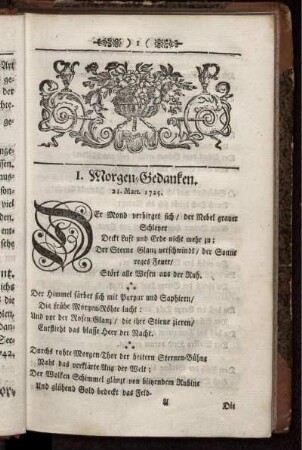 ) 1 (
I. Morgen-Gedanken.
21. Mart. 1725.
DEr Mond verbirget sich/ der Nebel grauer
Schleyer
Deckt Luft und Erde nicht mehr zu;
Der Sterne Glanz verschwindt/ der Sonne
reges Feuer/
Stört alle Wesen aus der Ruh.
Der Himmel färbet sich mit Purpur und Saphiren/
Die frühe Morgen-Röhte lacht:
Und vor der Rosen-Glanz/ die ihre Stirne zieren/
Entflieht das blasse Heer der Nacht.
Durchs rohte Morgen-Thor der heitern Sternen-Bühne
Naht das verklärte Aug der Welt;
Der Wolken Schimmel glänzt von blitzendem Rubine
Und glühend Gold bedeckt das Feld.
A
Die